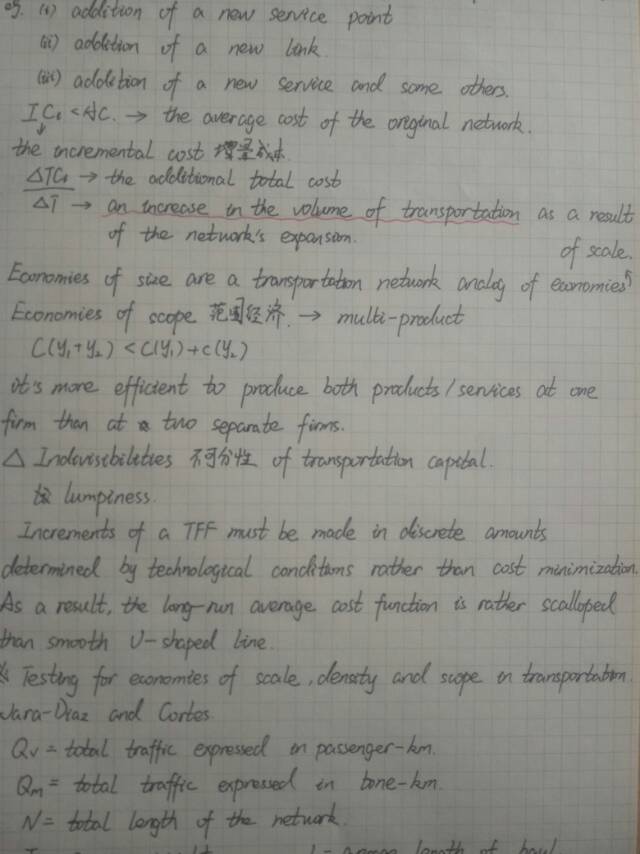 eg. (i) addition of a new service point
(ii) addition of a new link
(iii) addition of a new service and some others.
IC₀ < AC. → the average cost of the original network.
↓
the incremental cost 增量成本.
ΔTC₀ → the additional total cost
ΔT → an increase in the volume of transportation as a result
of the network's expansion.
of scale.
Economies of size are a transportation network analog of economies
Economies of scope 范围经济. → multi-product
C(y₁+y₂) < C(y₁)+C(y₂)
it's more efficient to produce both products/services at one
firm than at two separate firms.
△ Indevisibilities 不可分性 of transportation capital.
lumpiness.
Increments of a TFF must be made in discrete amounts
determined by technological conditions rather than cost minimization.
As a result, the long-run average cost function is rather scalloped
than smooth U-shaped line.
Testing for economies of scale, density and scope in transportation.
Jara-Diaz and Cortes
Qv = total traffic expressed in passenger-km.
Qm = total traffic expressed in tone-km.
N = total length of the network.
length of haul